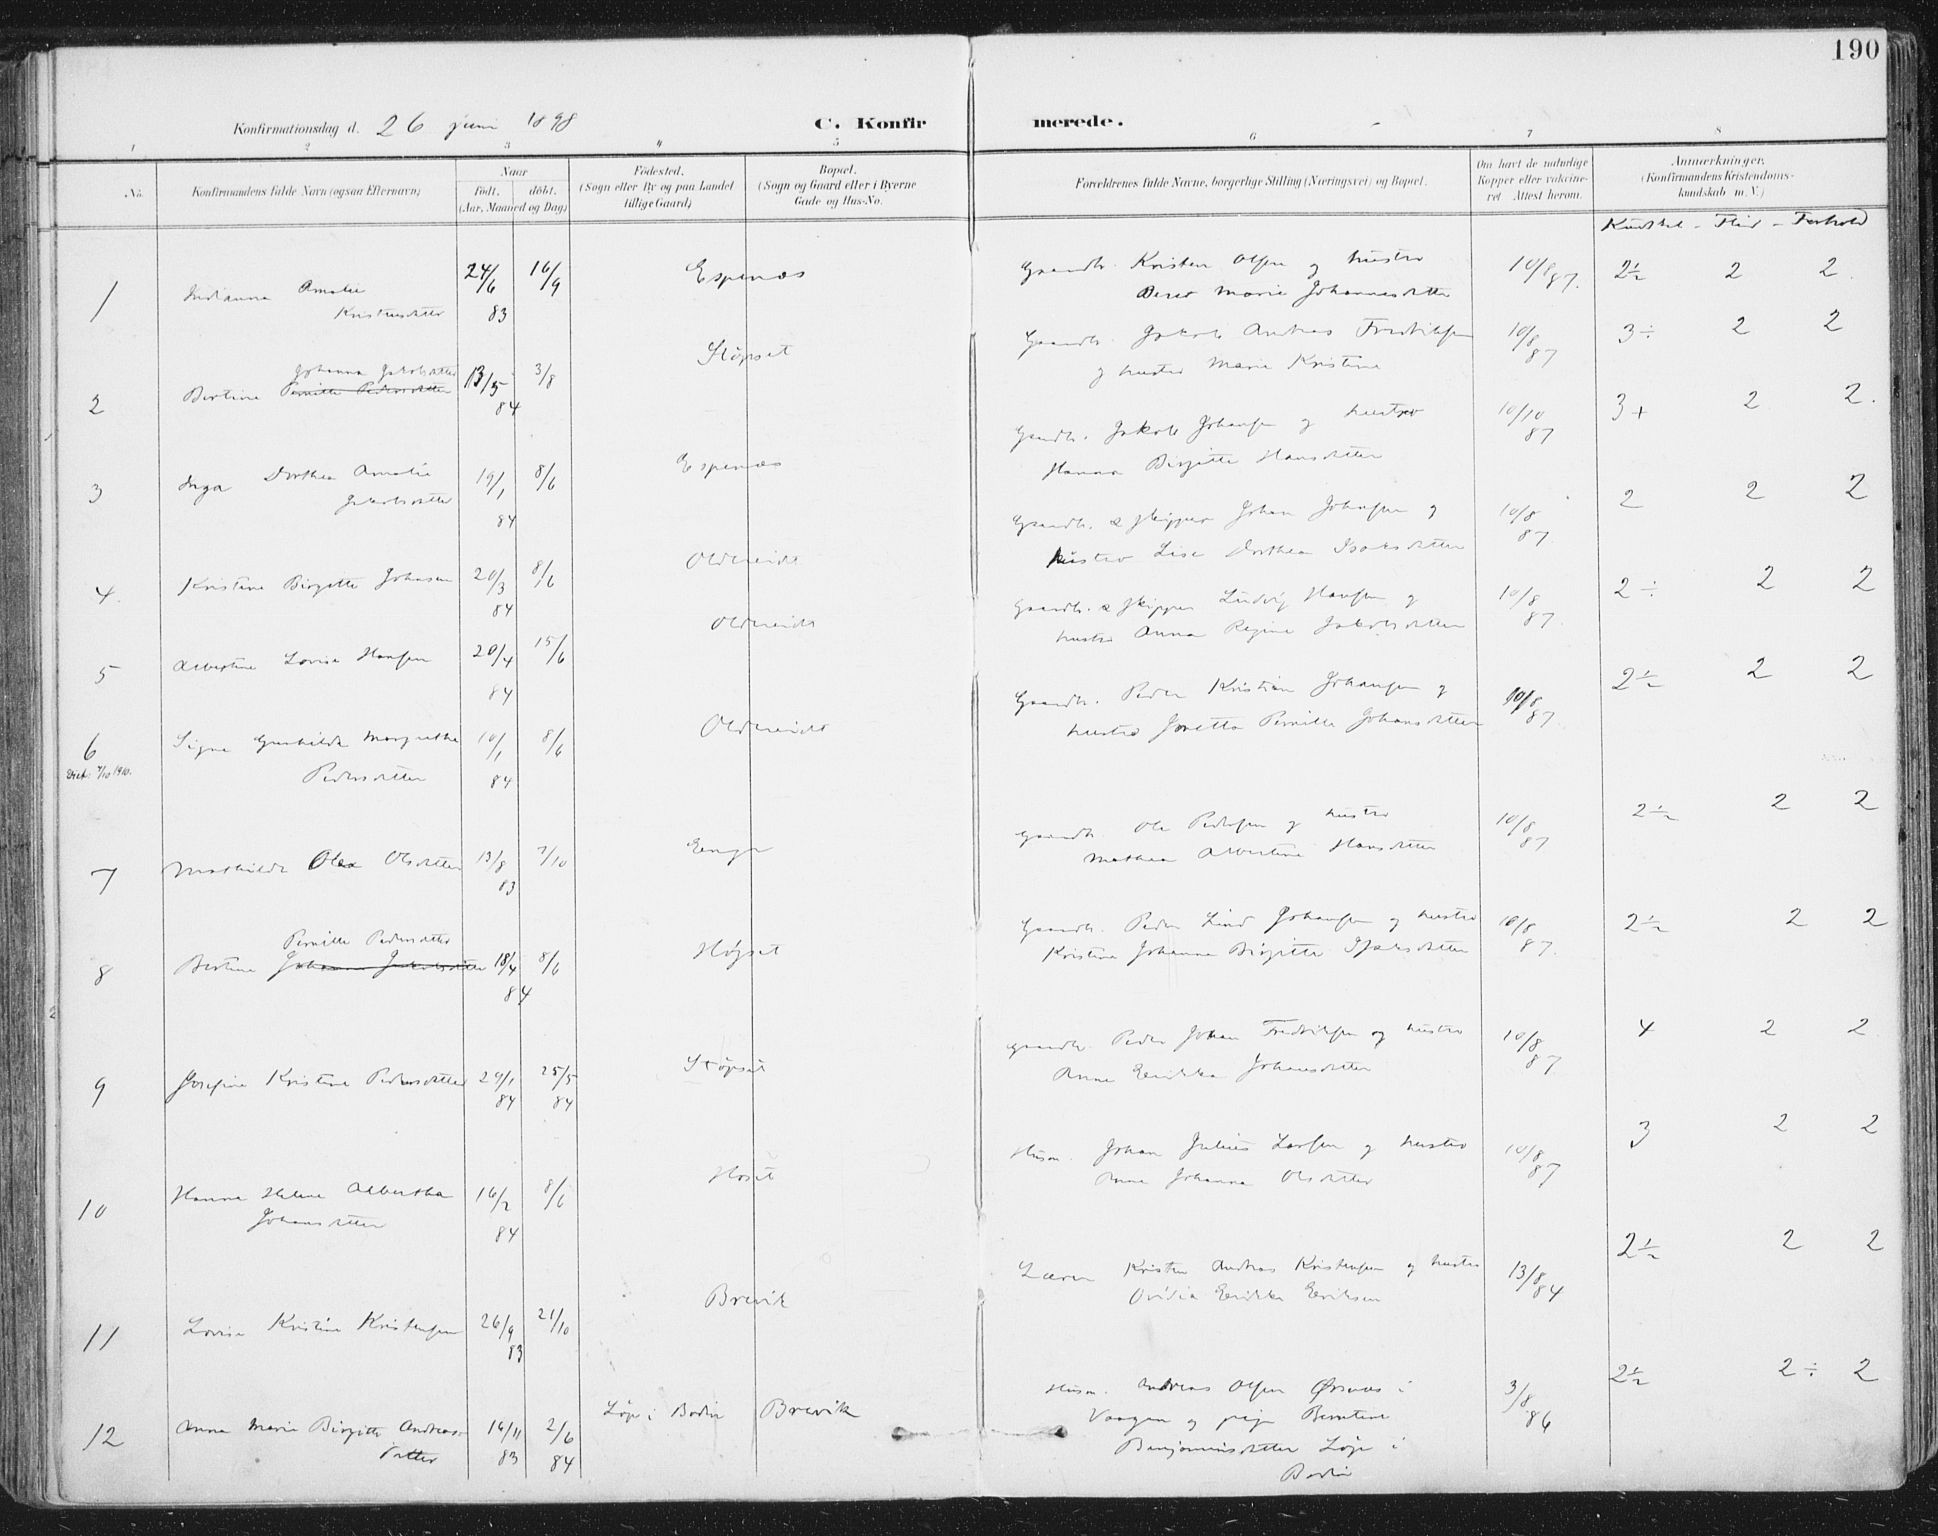 190
Konfirmationsdag d. 26 juni 1898
C. Konfirmerede.
1 2 3 4 5 6 7 8
No.
Konfirmandens fulde Navn (ogsaa Efternavn)
Naar
födt. döbt.
(Aar, Maaned og Dag)
Födested.
(Sogn eller By og paa Landet
tillige Gaard)
Bopæl.
(Sogn og Gaard eller i Byerne
Gade og Hus-No.
Forældrenes fulde Navne, borgerlige Stilling (Næringsvei) og Bopæl.
Om havt de naturlige
Kopper eller vakcineret
Attest herom.
Anmærkninger.
(Konfirmandens Kristendomskundskab
m. V.)
Kundskab - Flid - Forhold
1 Amalie
Kristensdatter 24/6 83 16/9 Espenæs
Gaardb. Kristen Olsen og hustro
Marie Johannesdatter 10/8 87. 2½ 2 2.
2 Bertine Johanna Jakobsdatter
Pernitte Pedersdatter 13/5 84 3/8
Gaardb. Jakob Andreas Fredriksen
og hustro Marie Kristine 10/8 87 3÷ 2 2
3 Inga Dorthea Amalie
Jakobsdatter 19/1 84 8/6 Espenæs
Gaardb. Jakob Johansen og hustro
Hanna Birgitte Hansdatter 10/10 87 3+ 2 2.
4. Kristine Birgitte Johansen 20/3 84 8/6 Oldereidt
Gaardb. & skipper Johan Johansen og
hustro Lise Dorthea Isaksdatter 10/8 87. 2 2 2
5 Albertine Lovise Hansen 20/4 84 15/6 Oldereidt
Gaardb. & skipper Ludvig Hansen og
hustro Anna Regine Jakobsdatter 10/8 87. 2÷ 2 2
6 Signe Gunhilda Margrethe
Pedersdatter 10/1 84 8/6 Oldereidt
Gaardb. Peder Kristian Johansen og
hustro Jonetta Pernille Johansdatter 10/8 87. 2½ 2 2
7 Mathilde Olea Olsdatter 13/8 83 7/10
Gaardb. Ole Pedersen og hustro
Mathea Albertine Hansdatter 10/8 87 2½ 2 2
8 Bertine Pernille Pedersdatter
Johanna Jakobsdatter 18/4 84 8/6
Gaardb. Peder Lind Johansen og hustro
Kristine Johanna Birgitte Isaksdatter 10/8 87. 2½ 2 2
9 Josefine Kristine Pedersdatter 29/1 84 25/5 84
Gaardb. Peder Johan Fredriksen og hustro
Anne Erikka Johansdatter 10/8 87 4 2 2
10 Hanna Helene Albertha
Johansdatter 16/2 84 8/6 Høset
Husm. Johan Julius Larsen og hustro
Anne Johanna Olsdatter 10/8 87 3 2 2
11 Lovise Kristine Kristensen 26/9 83 21/10 Brevik
Lærer Kristen Andreas Kristensen og hustro
Ovidia Erikka Eriksen 13/8 84 2½ 2 2
12 Anna Marie Birgitte Andreasdatter 16/11 83 2/6 84 Løp i Bodin Brevik
Husm. Andreas Olsen Ørsnes i
Vaagen og pige Berntine
Benjaminsdatter Løp i
Bodin 3/8 86 2½ 2÷ 2